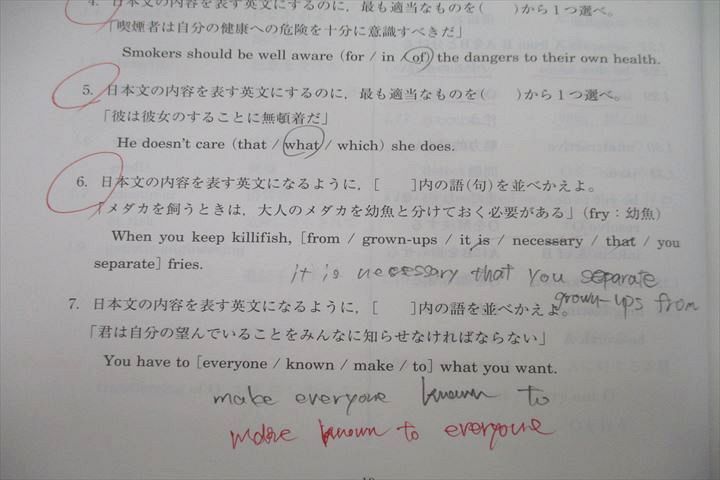 4. 日本文の内容を表す英文にするのに，最も適当なものを(　　)から1つ選べ。
「喫煙者は自分の健康への危険を十分に意識すべきだ」
Smokers should be well aware (for / in / of) the dangers to their own health.
5. 日本文の内容を表す英文にするのに，最も適当なものを(　　)から1つ選べ。
「彼は彼女のすることに無頓着だ」
He doesn't care (that / what / which) she does.
6. 日本文の内容を表す英文になるように，[　　]内の語(句)を並べかえよ。
「メダカを飼うときは，大人のメダカを幼魚と分けておく必要がある」(fry：幼魚)
When you keep killifish, [from / grown-ups / it is / necessary / that / you
separate] fries.
it is necessary that you separate
grown-ups from
7. 日本文の内容を表す英文になるように，[　　]内の語を並べかえよ。
「君は自分の望んでいることをみんなに知らせなければならない」
You have to [everyone / known / make / to] what you want.
make everyone known to
make known to everyone